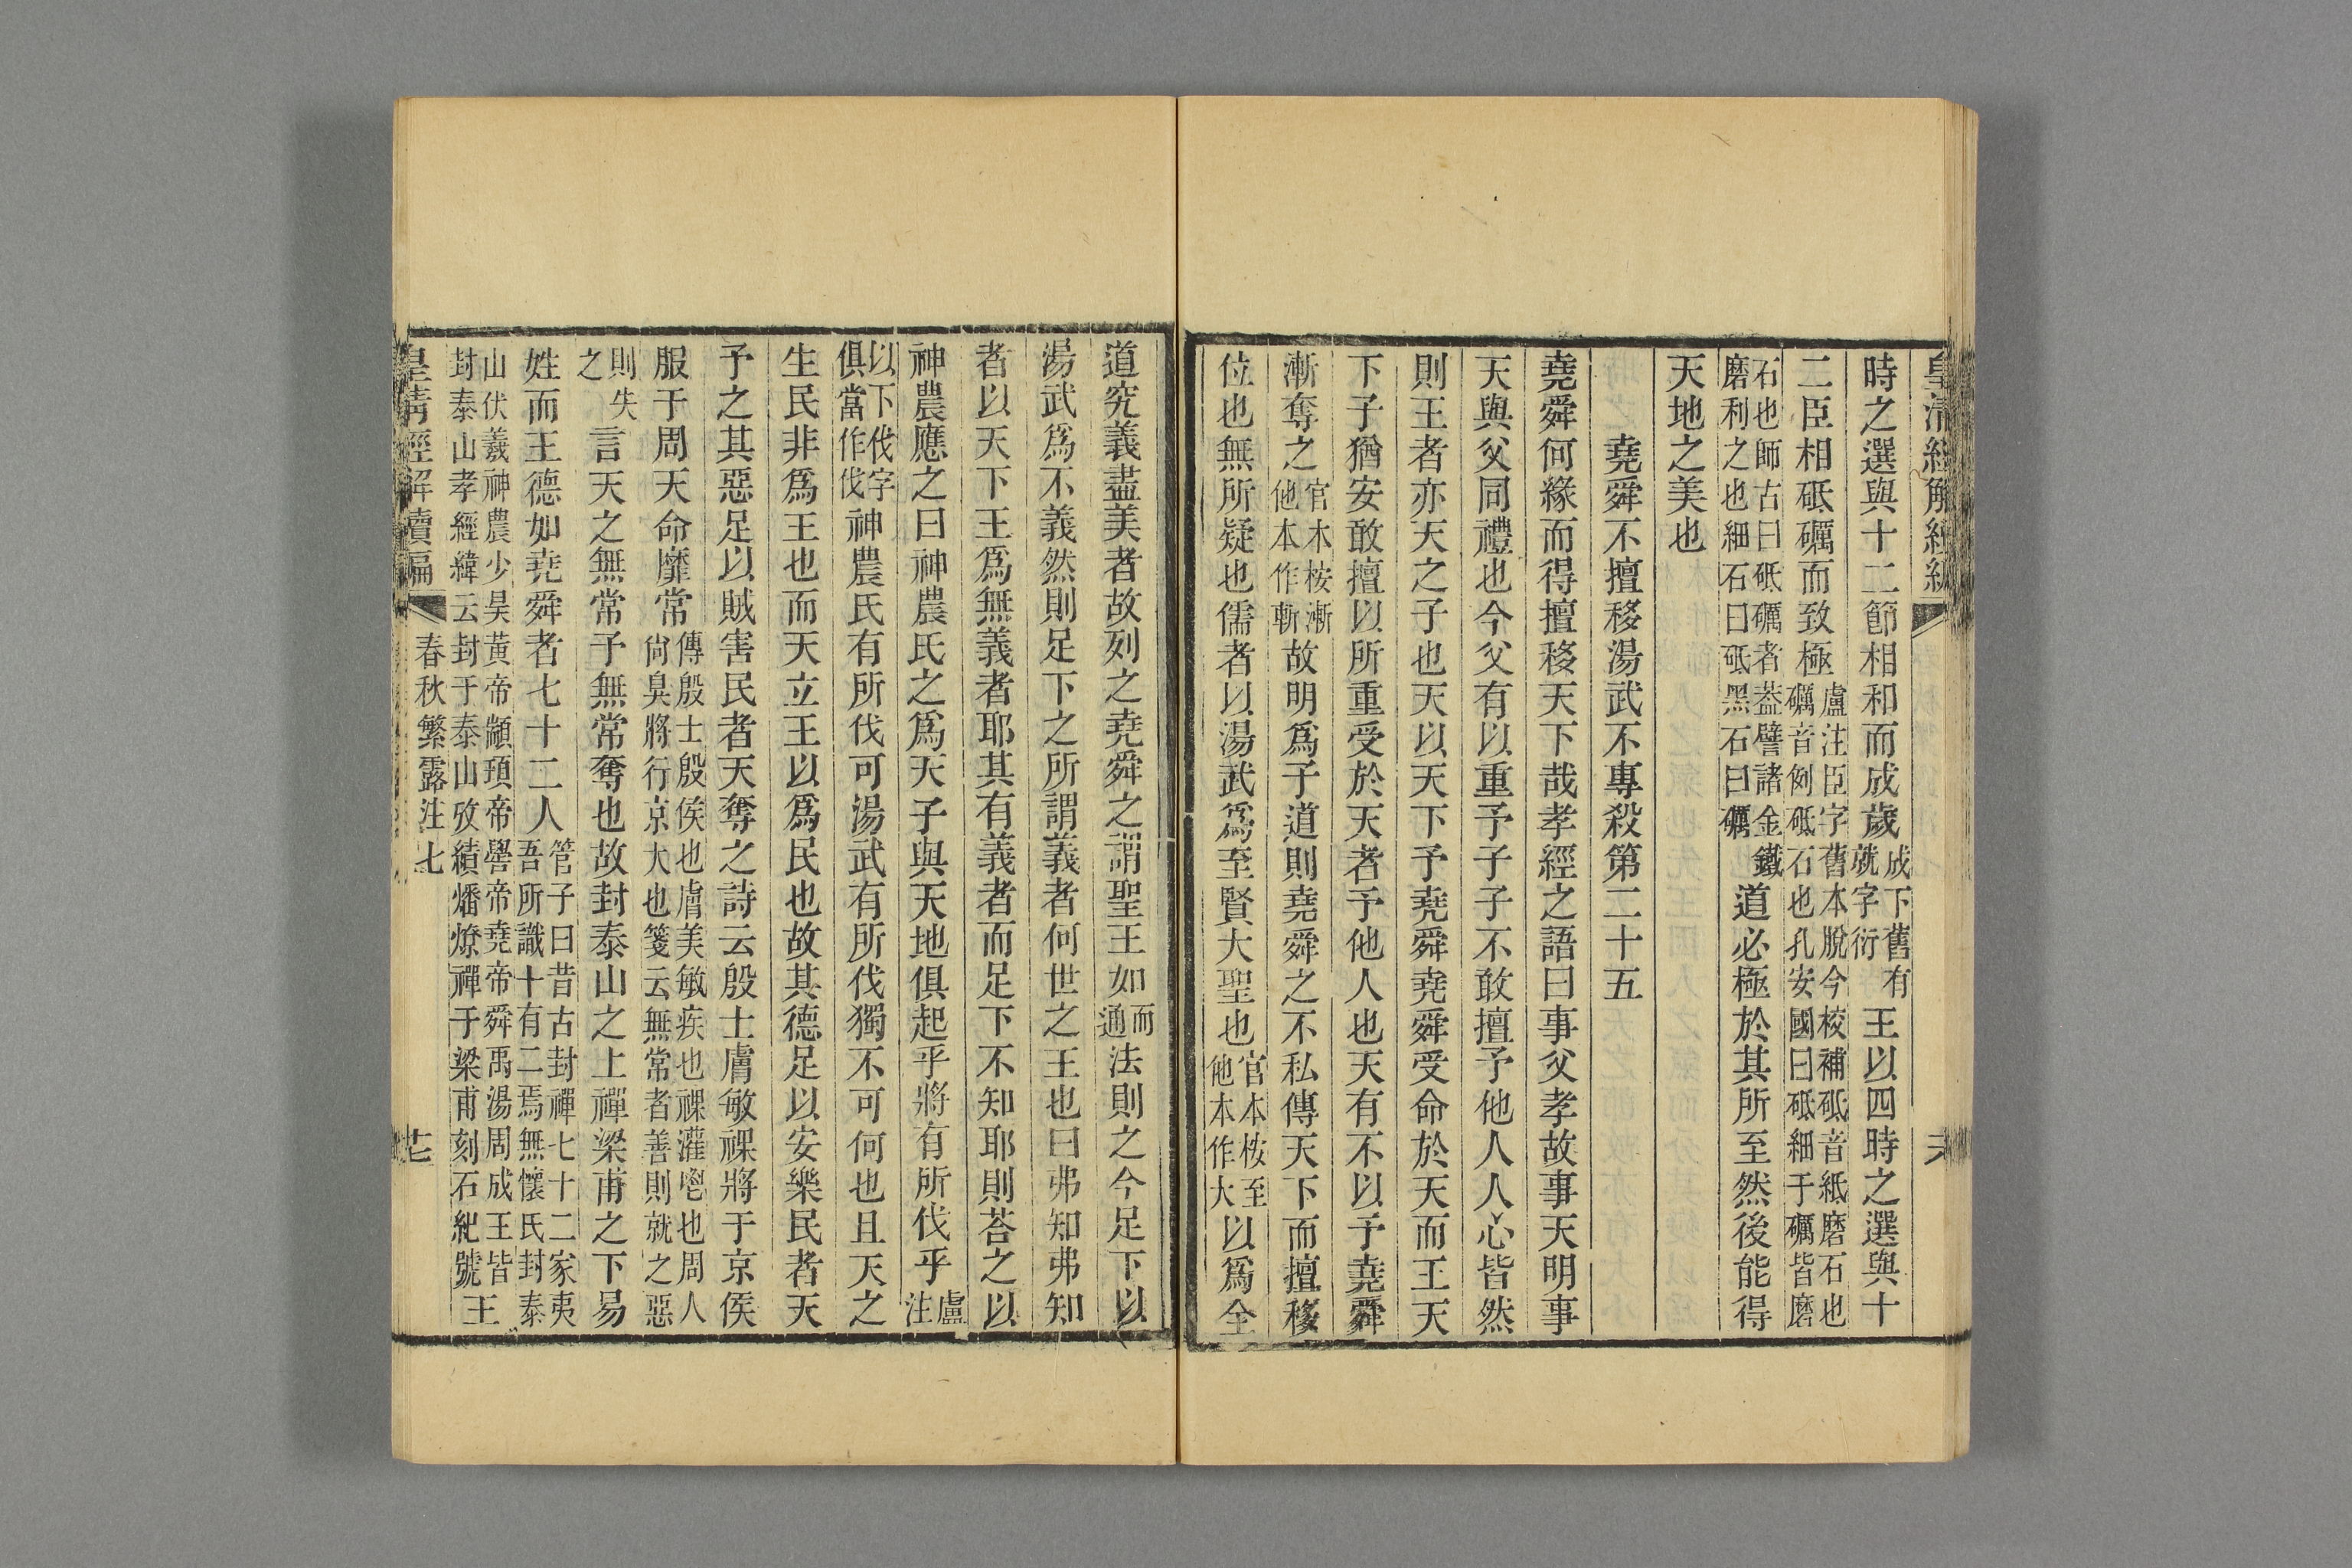 皇清經解續編
時之選與十二節相和而成歲成下舊有就字衍王以四時之選與十
二臣相砥礪而致極盧注臣字舊本脫今校補砥音紙磨石也礪音例砥石也孔安國曰砥細于礪皆磨
石也師古曰砥礪者葢譬諸金鐵磨利之也細石曰砥黑石曰礪道必極於其所至然後能得
天地之美也
堯舜不擅移湯武不專殺第二十五
堯舜何緣而得擅移天下哉孝經之語曰事父孝故事天明事
天與父同禮也今父有以重予子子不敢擅予他人人心皆然
則王者亦天之子也天以天下予堯舜堯舜受命於天而王天
下子猶安敢擅以所重受於天者予他人也天有不以予堯舜
漸奪之官本桉漸他本作斬故明爲子道則堯舜之不私傳天下而擅移
位也無所疑也儒者以湯武爲至賢大聖也官本桉至他本作大以爲全
道究義盡美者故列之堯舜之謂聖王如而通法則之今足下以
湯武爲不義然則足下之所謂義者何世之王也曰弗知弗知
者以天下王爲無義者耶其有義者而足下不知耶則荅之以
神農應之曰神農氏之爲天子與天地俱起乎將有所伐乎盧注
以下伐字俱當作伐神農氏有所伐可湯武有所伐獨不可何也且天之
生民非爲王也而天立王以爲民也故其德足以安樂民者天
予之其惡足以賊害民者天奪之詩云殷士膚敏祼將于京侯
服于周天命靡常傳殷士殷侯也膚美敏疾也祼灌鬯也周人尙臭將行京大也箋云無常者善則就之惡
則失之言天之無常予無常奪也故封泰山之上禪梁甫之下易
姓而王德如堯舜者七十二人管子曰昔古封禪七十二家夷吾所識十有二焉無懷氏封泰
山伏羲神農少昊黃帝顓頊帝嚳帝堯帝舜禹湯周成王皆封泰山孝經緯云封于泰山攷績燔燎禪于梁甫刻石紀號王
皇清經解續編 春秋繁露注七